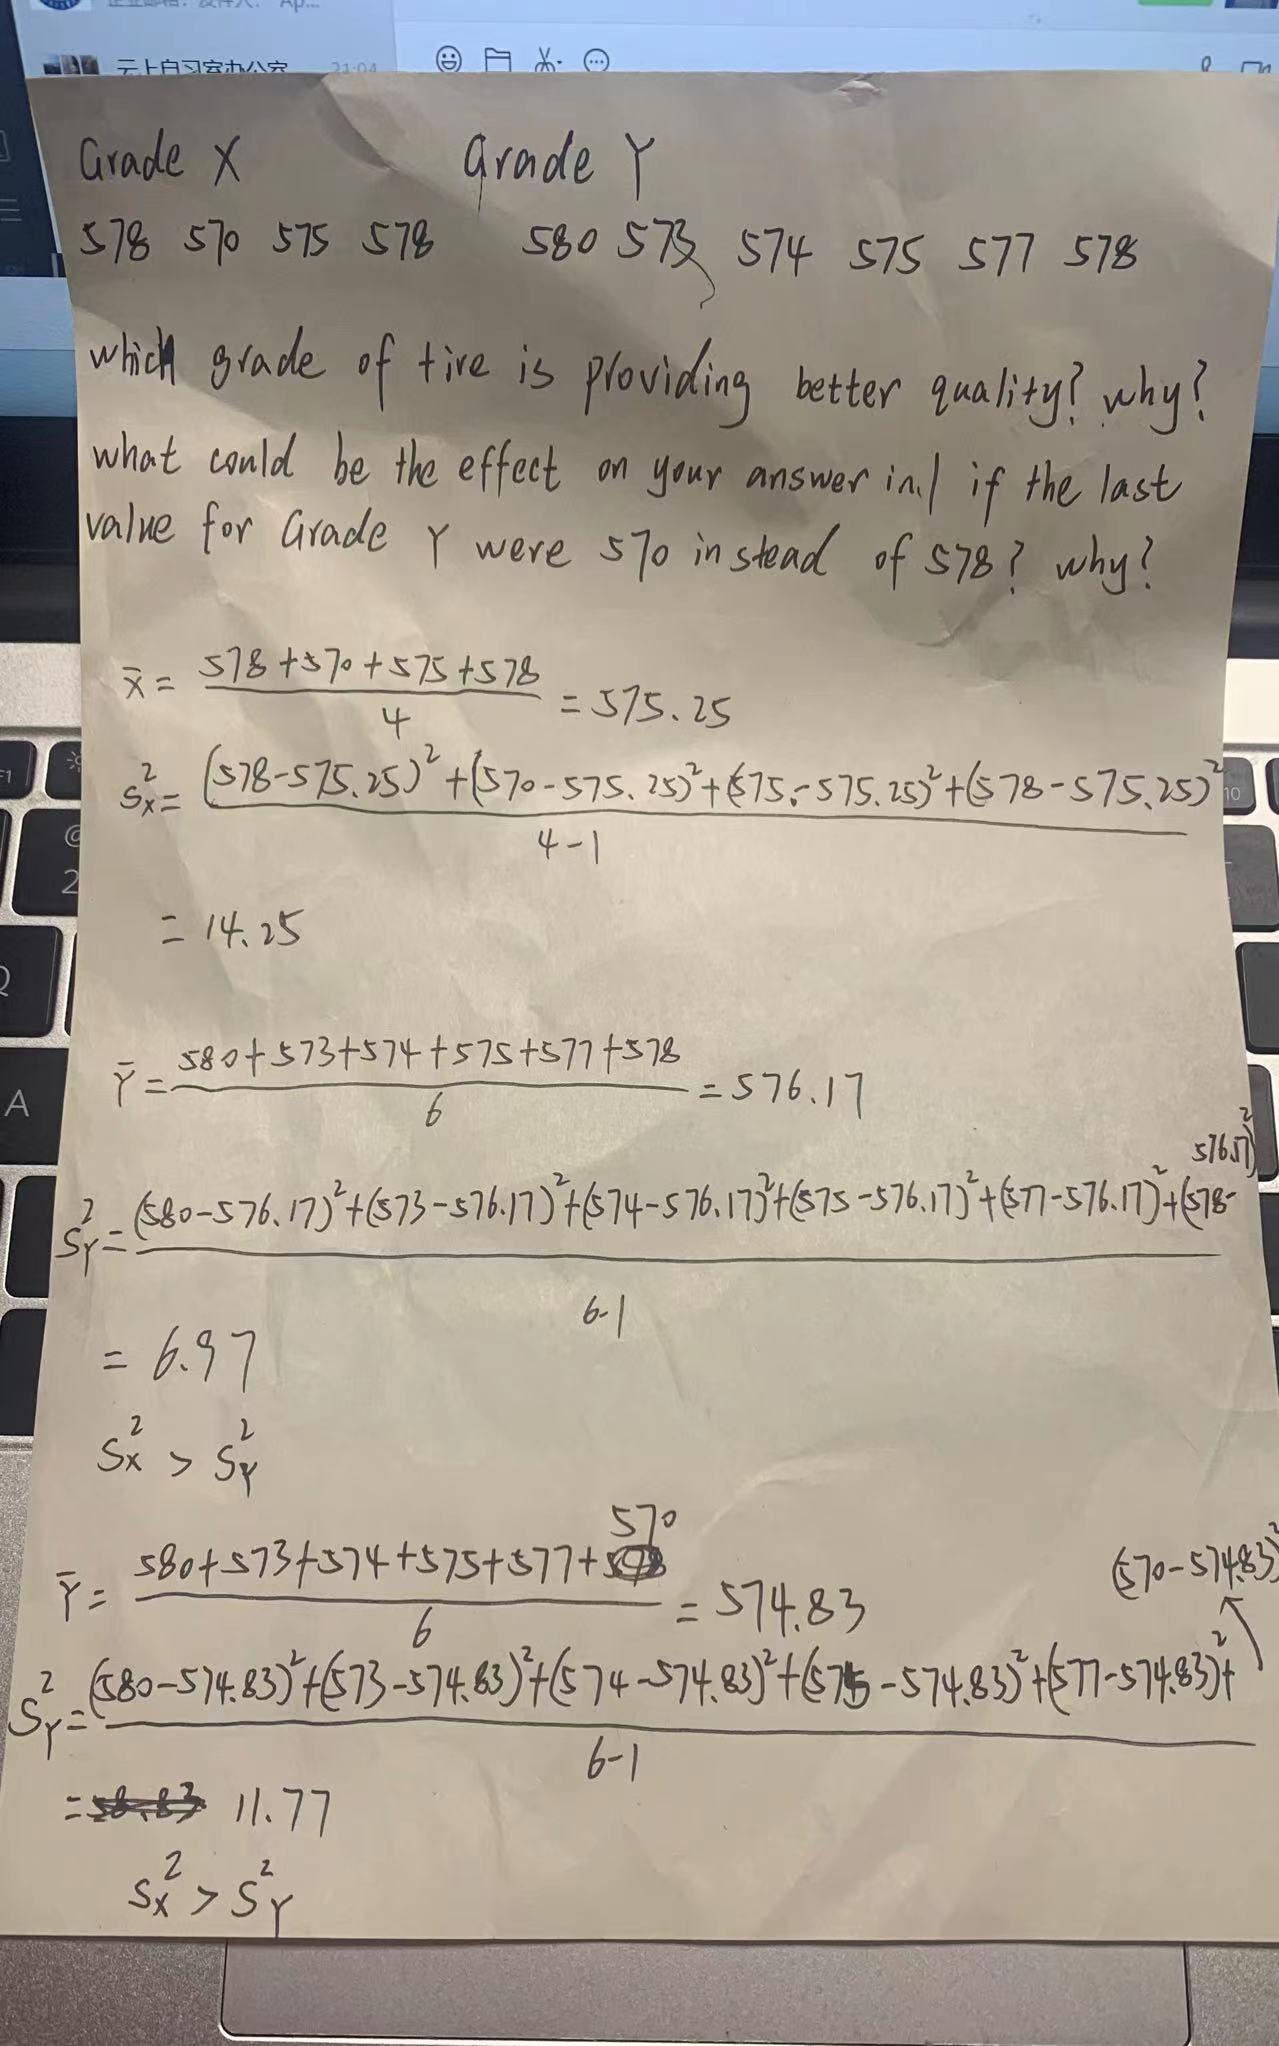 云上自习室办公室 21:04
Grade X Grade Y
578 570 575 578 580 573 574 575 577 578
which grade of tire is providing better quality? why?
what could be the effect on your answer in.1 if the last
value for Grade Y were 570 instead of 578? why?
x̄ = (578+570+575+578)/4 = 575.25
Sx² = ((578-575.25)²+(570-575.25)²+(575-575.25)²+(578-575.25)²)/(4-1)
= 14.25
Ȳ = (580+573+574+575+577+578)/6 = 576.17
SY² = ((580-576.17)²+(573-576.17)²+(574-576.17)²+(575-576.17)²+(577-576.17)²+(578-576.17)²)/(6-1)
= 6.97
Sx² > SY²
Ȳ = (580+573+574+575+577+570)/6 = 574.83
SY² = ((580-574.83)²+(573-574.83)²+(574-574.83)²+(575-574.83)²+(577-574.83)²+(570-574.83)²)/(6-1)
= 11.77
Sx² > SY²